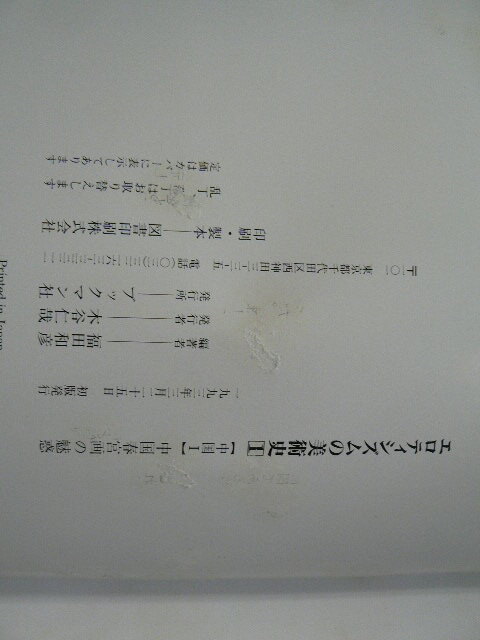 エロティシズムの美術史1【中国Ⅰ】中国春宮画の魅惑
一九九三年二月二十五日 初版発行
編著者──福田和彦
発行者──木谷仁哉
発行所──ブックマン社
〒一〇一 東京都千代田区西神田三-三-五 電話(〇三)
印刷・製本──図書印刷株式会社
乱丁、丁はお取り替えします
定価はカバーに表示してあります
Printed in Japan